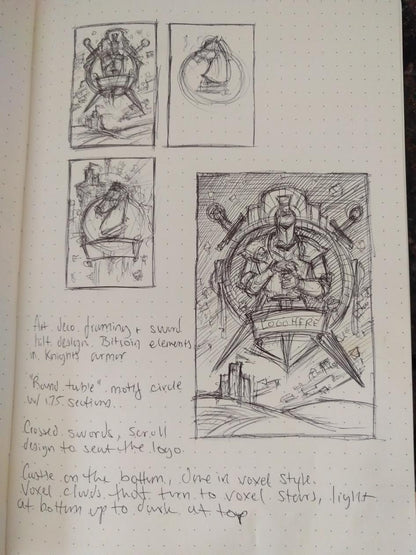 LOGO HERE
Art Deco framing + sword
hilt design. Bitcoin elements
in Knights armor
"Round table" motif circle
w/ 175 sections.
Crossed swords, scroll
design to seat the logo.
Castle on the bottom, done in voxel style.
Voxel clouds that turn to voxel stars, light
at bottom up to dark at top